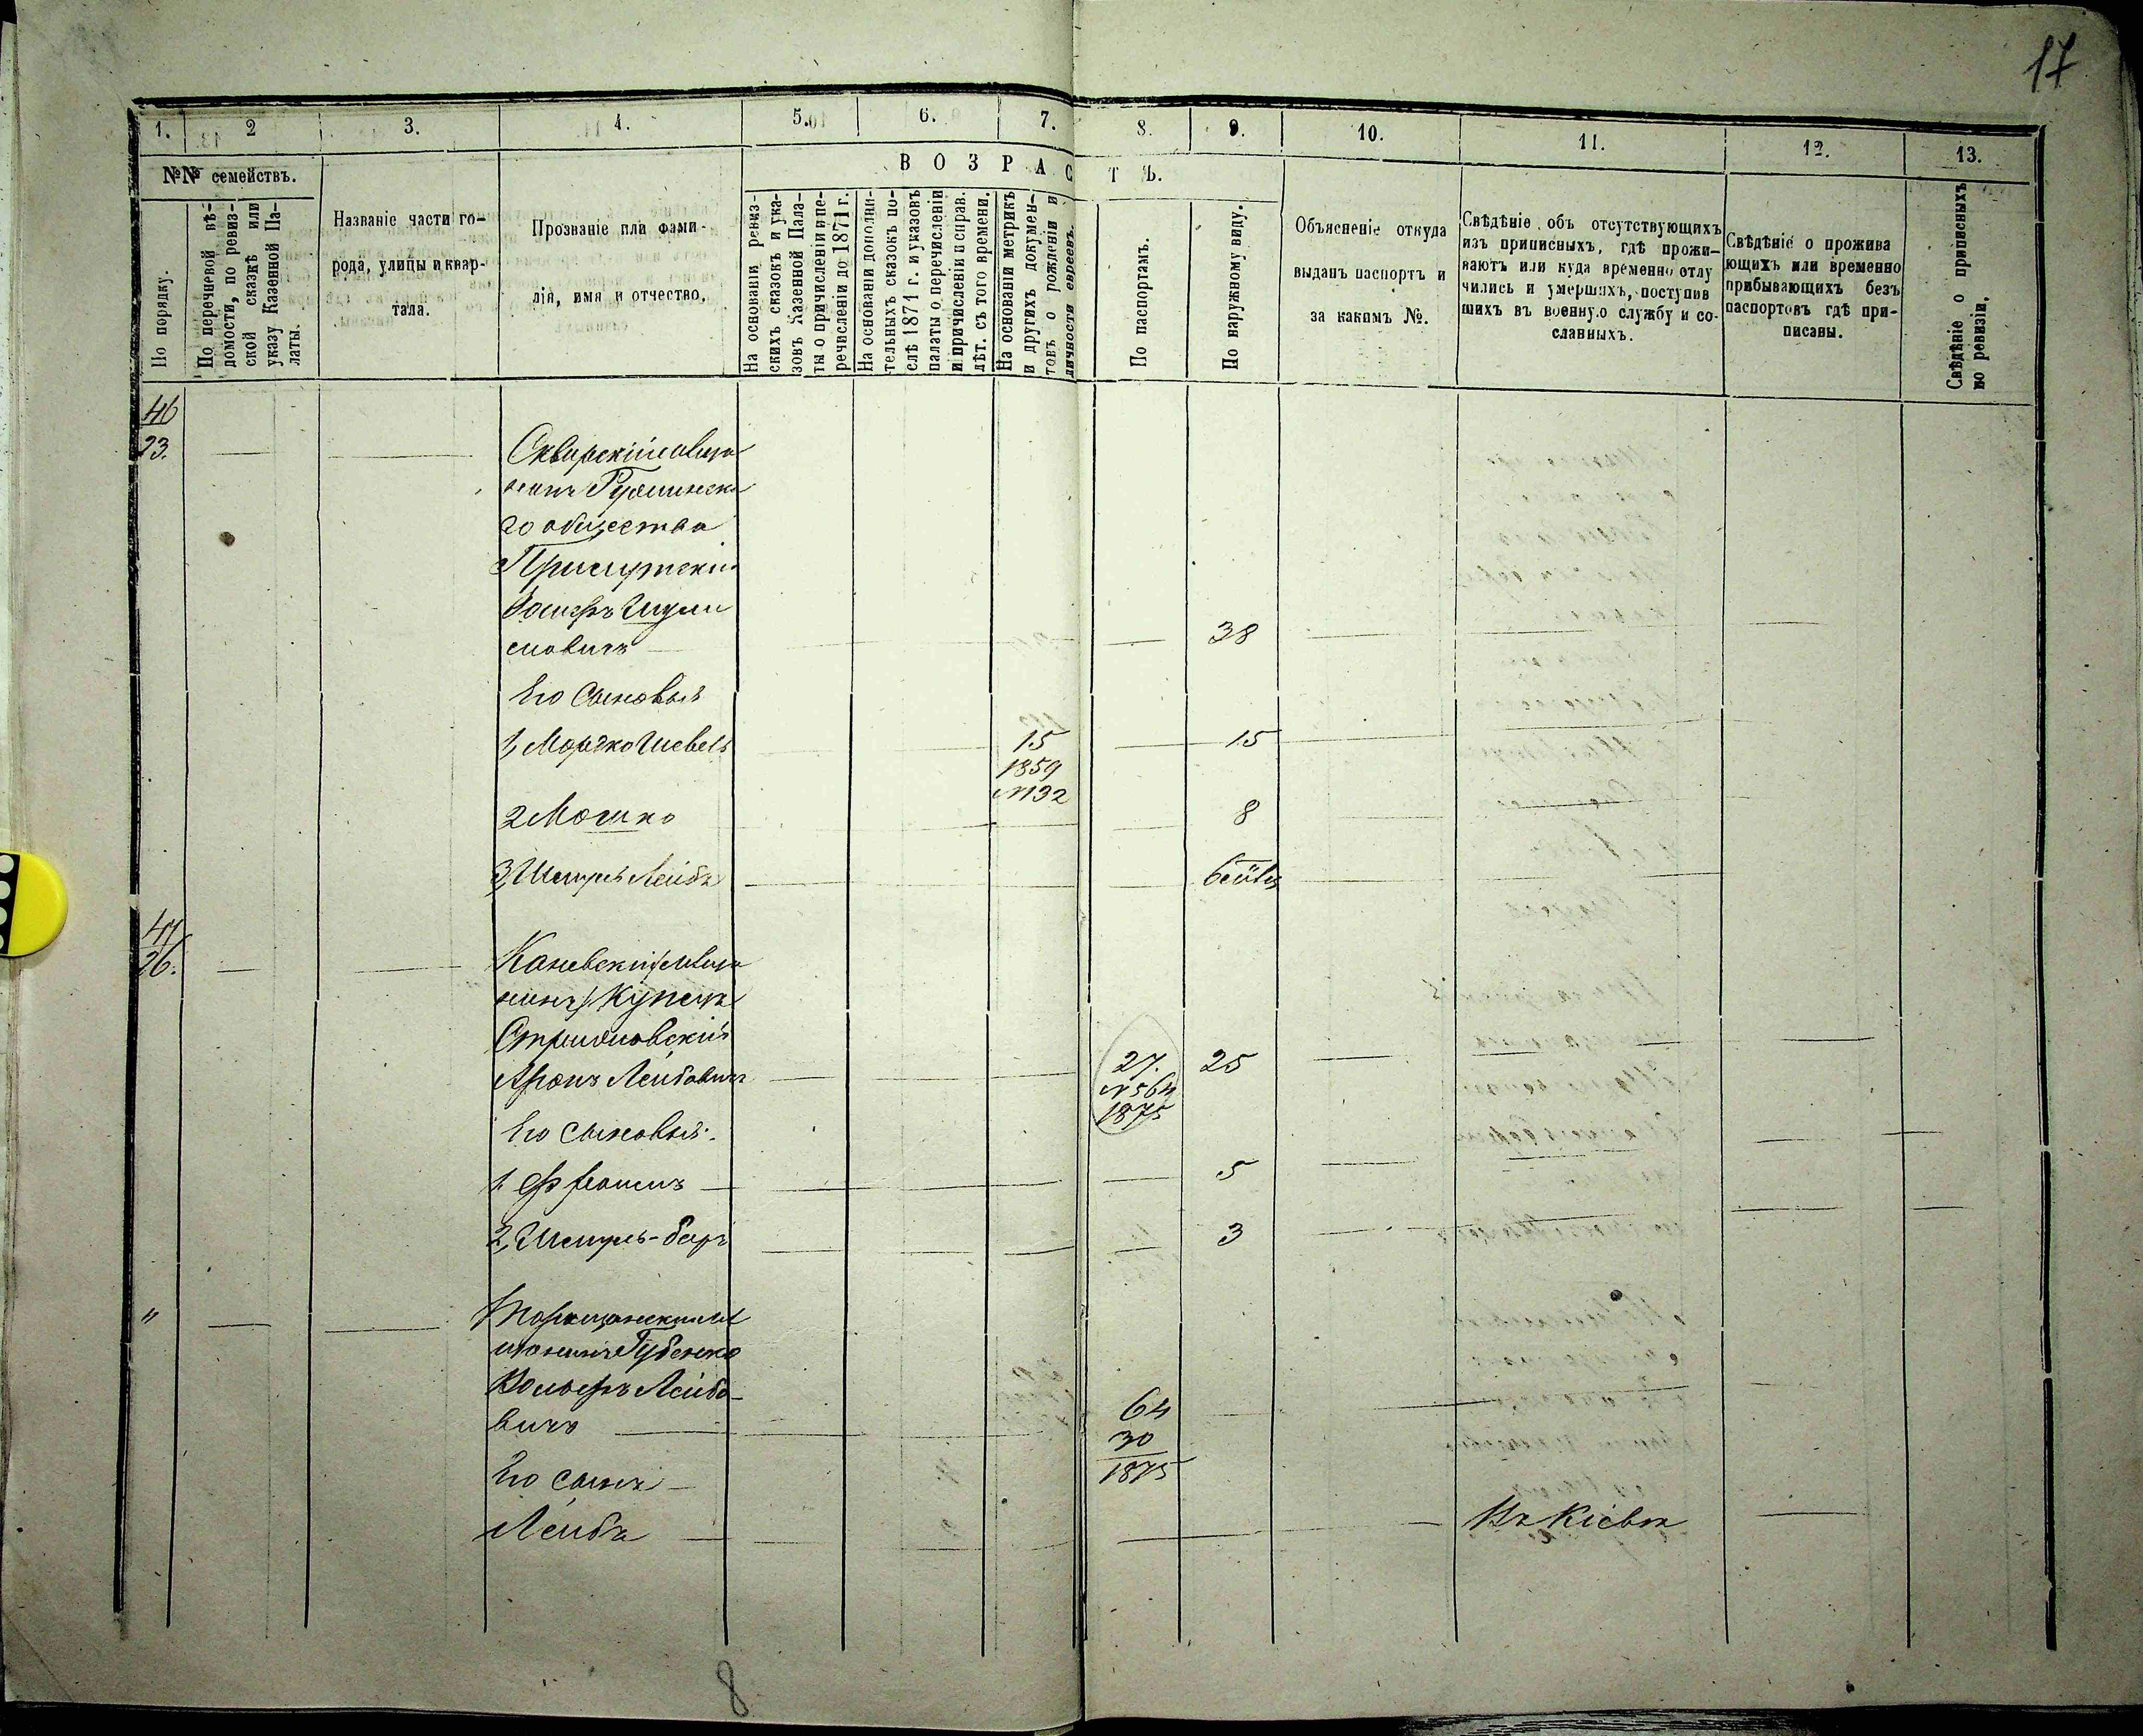 17
1. 2 3. 4. 5. 6. 7. 8. 9. 10. 11. 12. 13.
№№ семействъ.
ВОЗРАСТЪ.
По порядку.
По перечневой вѣ-
домости, по ревиз-
ской сказкѣ или
указу Казенной Па-
латы.
Названіе части го-
рода, улицы и квар-
тала.
Прозваніе или фами-
лія, имя и отчество.
На основаніи ревиз-
скихъ сказокъ и ука-
зовъ Казенной Пала-
ты о причисленіи и пе-
речисленіи до 1871 г.
На основаніи дополни-
тельныхъ сказокъ по-
слѣ 1871 г. и указовъ
палаты о перечисленіи
и причисленіи и справ.
лѣт. съ того времени.
На основаніи метрикъ
и другихъ докумен-
товъ о рожденіи и
личности евреевъ.
По паспортамъ.
По наружному виду.
Объясненіе откуда
выданъ паспортъ и
за какимъ №.
Свѣдѣніе объ отсутствующихъ
изъ приписныхъ, гдѣ прожи-
ваютъ или куда временно отлу
чились и умершихъ, поступив
шихъ въ военную службу и со-
сланныхъ.
Свѣдѣніе о прожива
ющихъ или временно
прибывающихъ безъ
паспортовъ гдѣ при-
писаны.
Свѣдѣніе о приписныхъ
по ревизіи.
46
23.
Сквирскій мѣща
нинъ
го общества
38
Его сыновья
1, Мордко Шевель 15 15
1859
№132
2 Мошко 8
3, Лейба
47
26.
Каневскій мѣща
нинъ Купецъ
Аронъ Лейбовичъ 27. 25
№564
1875
Его сыновья:
1. Эфроимъ 5
2, 3
"
Таращанскій мѣ
щанинъ Губенко
Вольфъ Лейбо-
вичъ 64
30
1875
Его сынъ
Лейба Въ Кіевѣ
8